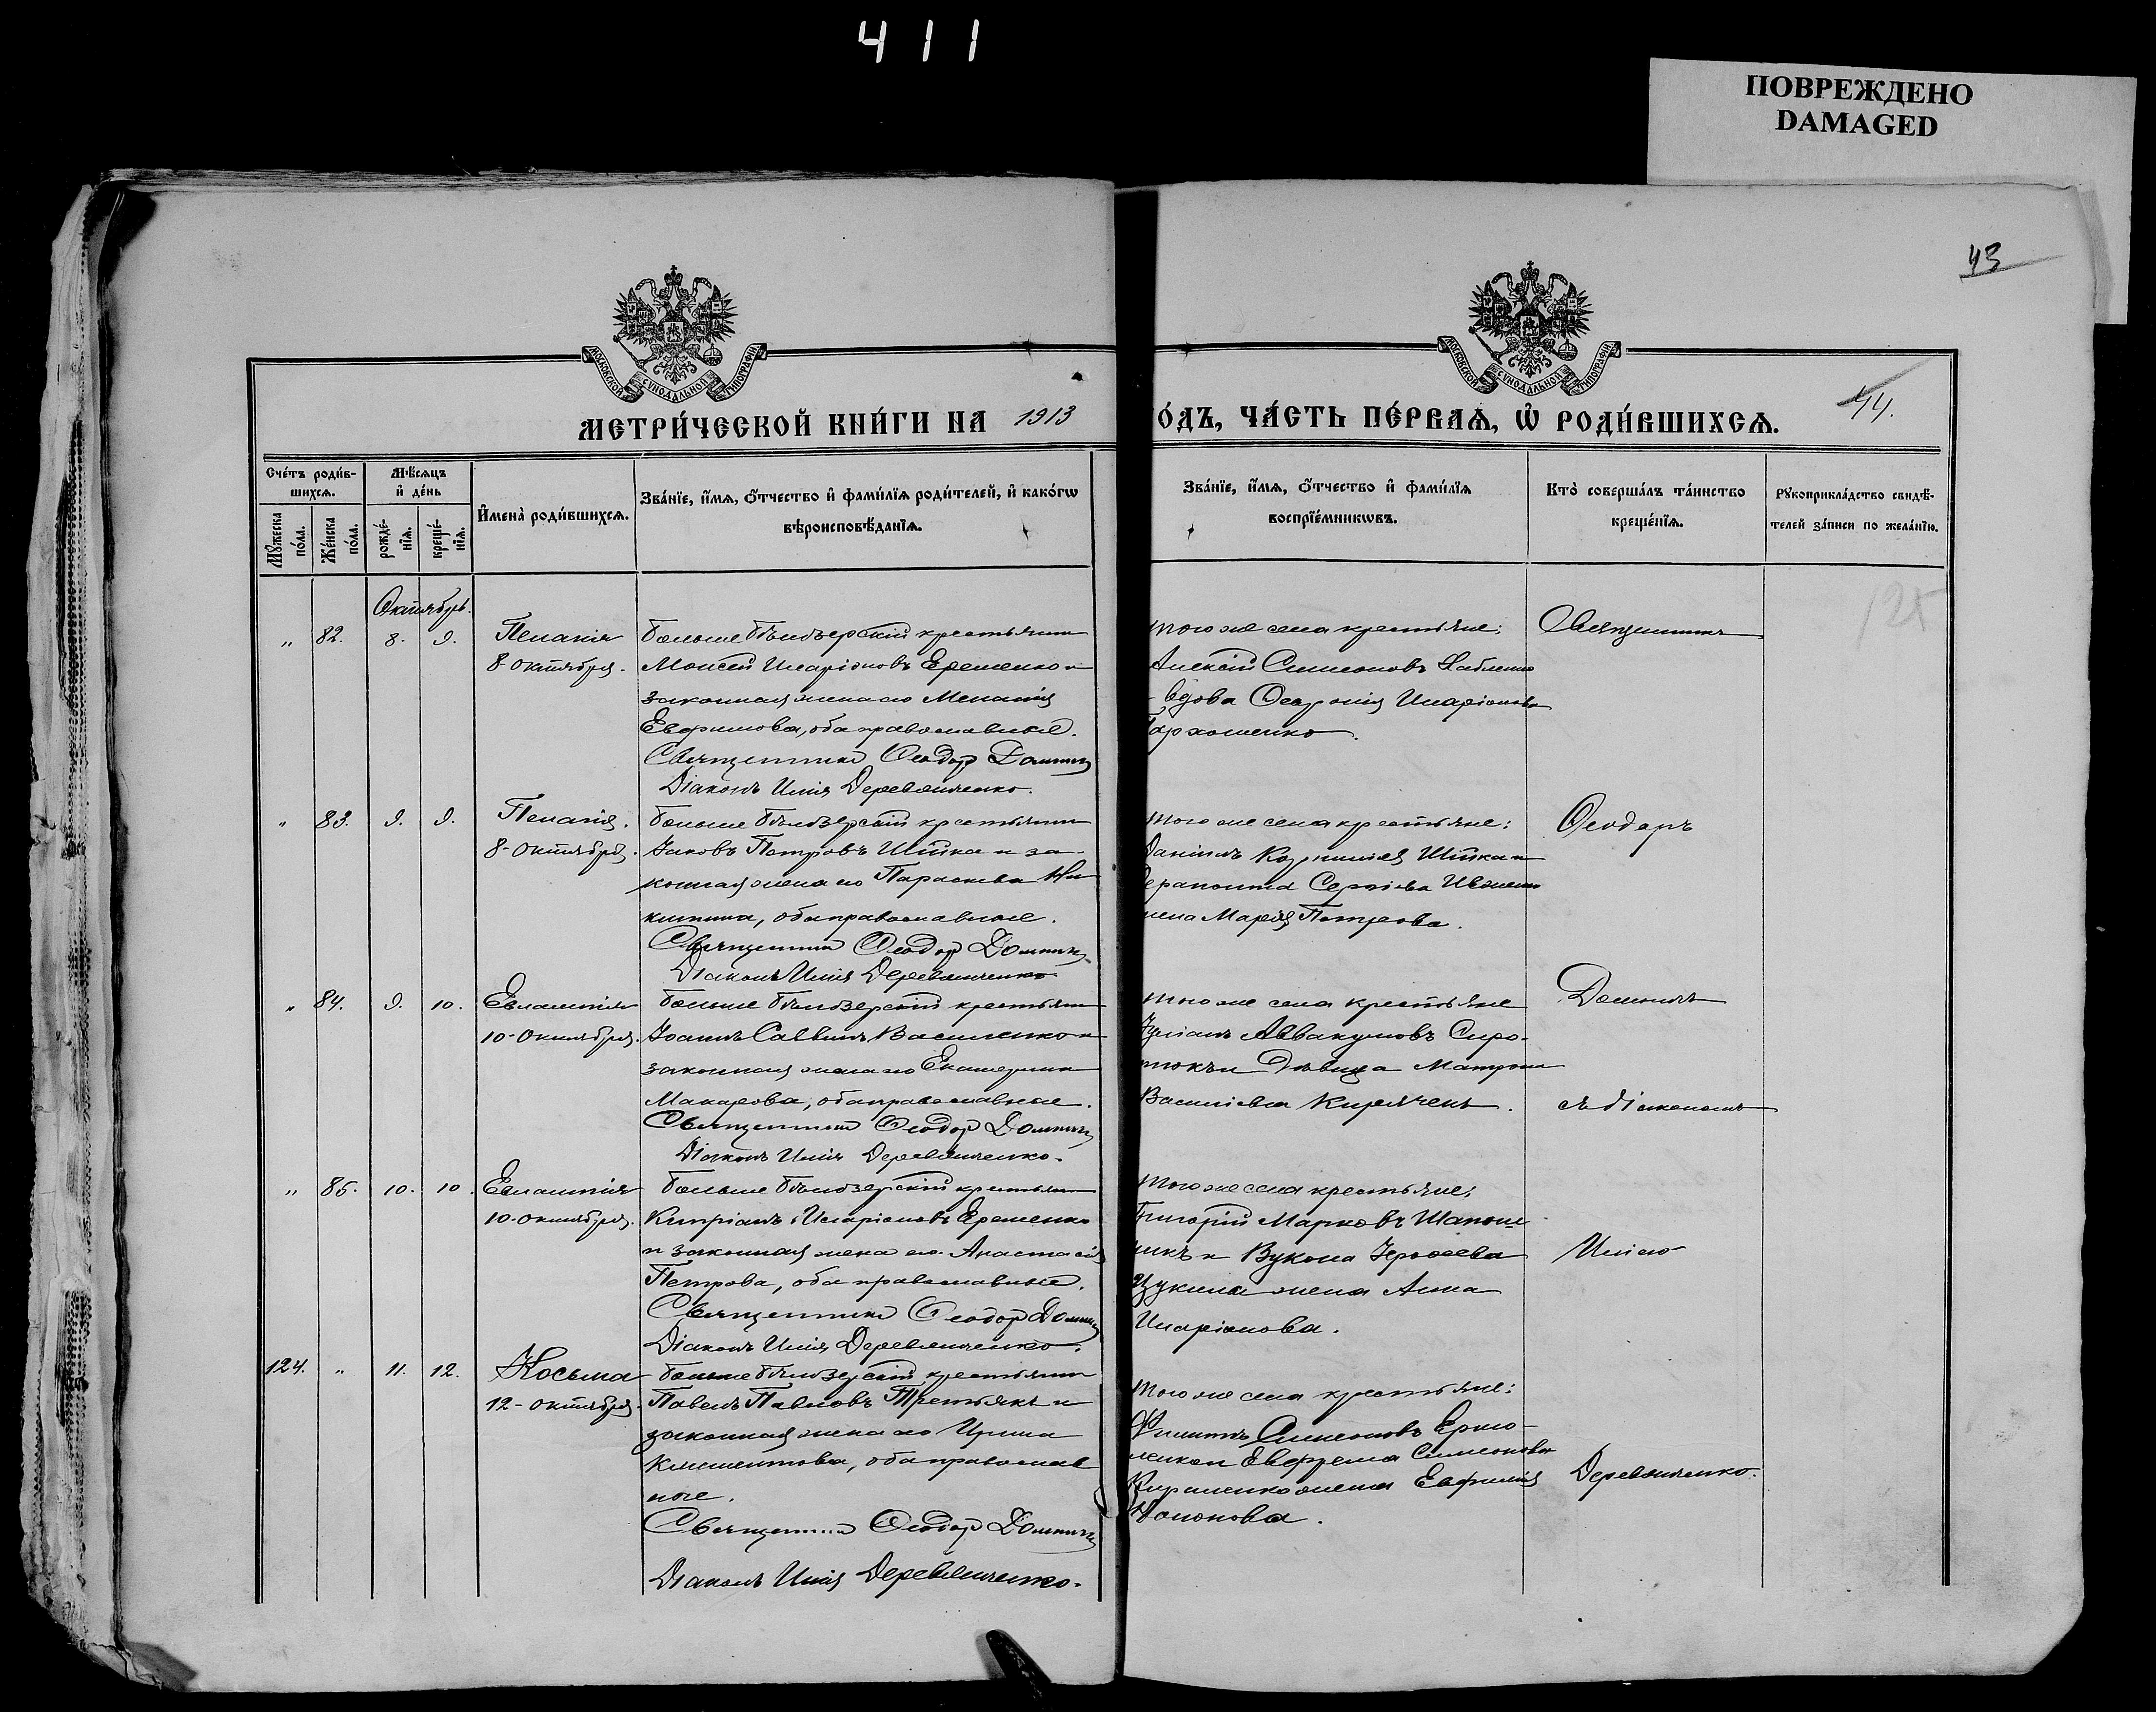 411
ПОВРЕЖДЕНО
DAMAGED
43
МЕТРИ́ЧЕСКОЙ КНИ́ГИ НА 1913
О́ДЪ, ЧА́СТЬ ПЕ́РВАѦ, Ѡ҆ РОДИ́ВШИХСѦ.
44.
Сче́тъ роди́в-
шихсѧ.
Мѣ́сѧцъ
и҆ де́нь
И҆мена̀ роди́вшихсѧ.
Зва́нїе, и҆́мѧ, ѻ҆́тчество и҆ фами́лїѧ роди́телей, и҆ како́гѡ
вѣроисповѣ́данїѧ.
Мꙋ́жеска по́ла.
Же́нска по́ла.
рожде́-
нїѧ.
креще́-
нїѧ.
Зва́нїе, и҆́мѧ, ѻ҆́тчество и҆ фами́лїѧ
воспрїе́мникѡвъ.
Кто̀ соверша́лъ та́инство
креще́нїѧ.
Рꙋкоприкла́дство свидѣ́-
телей за́писи по жела́нїю.
125
Октябрь.
„ 82. 8. 9. Пелагія
8 октября.
Больше Бѣлозерскій крестьянинъ
Моисей Иларіоновъ Еременко и
законная жена его Меланія
Евфимова, оба православные.
Священникъ Ѳеодоръ
Діаконъ Илія Деревянченко.
того же села крестьяне:
Алексій Симеоновъ
вдова Иларіонова
Пархоменко.
Священникъ
„ 83. 9. 9. Пелагія.
8 Октября.
Больше Бѣлозерскій крестьянинъ
Іаковъ Петровъ Шпика и за-
конная жена его Параскева Ни
китина, оба православные.
Священникъ Ѳеодоръ
Діаконъ Илія Деревянченко
того же села крестьяне:
Даніилъ Шпика и
Ферапонта Сергіева
жена Марія Петрова.
Ѳеодоръ
„ 84. 9. 10. Евлампія
10 Октября.
Больше Бѣлозерскій крестьянинъ
Іоаннъ Саввинъ Василенко и
законная жена его Екатерина
Макарова, оба православные.
Священникъ Ѳеодоръ
Діаконъ Илія Деревянченко.
того же села крестьяне
Іуліанъ Аввакумовъ Сиро-
тюкъ и Дѣвица Матрона
Василіева
съ діакономъ
„ 85. 10. 10. Евлампія
10 октября.
Больше Бѣлозерскій крестьянинъ
Кипріанъ Иларіоновъ Еременко
и законная жена его Анастасія
Петрова, оба православные.
Священникъ Ѳеодоръ
Діаконъ Илія Деревянченко.
того же села крестьяне:
Григорій Марковъ Шапош
никъ и Вукола Іерофеева
Цукила жена Анна
Иларіонова.
Иліею
124. „ 11. 12. Косьма
12 октября.
Больше Бѣлозерскій крестьянинъ
Павелъ Павловъ Третьякъ и
законная жена его Ирина
Климентова, оба православ
ные.
Священникъ Ѳеодоръ
Діаконъ Илія Деревянченко.
того же села крестьяне:
Филиппъ Симеоновъ Ермо-
ленко и Ефрема Симеонова
Кириленко жена Евфимія
Деревянченко.